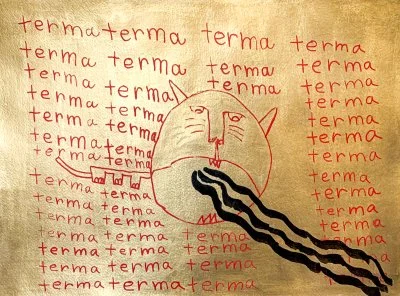 terma terma terma terma
terma terma terma terma
terma terma terma terma
terma terma terma
terma terma terma
terma terma terma
terma terma terma
terma terma
terma terma terma
terma terma terma
terma terma terma terma
terma terma terma terma
terma terma terma terma
terma terma terma terma